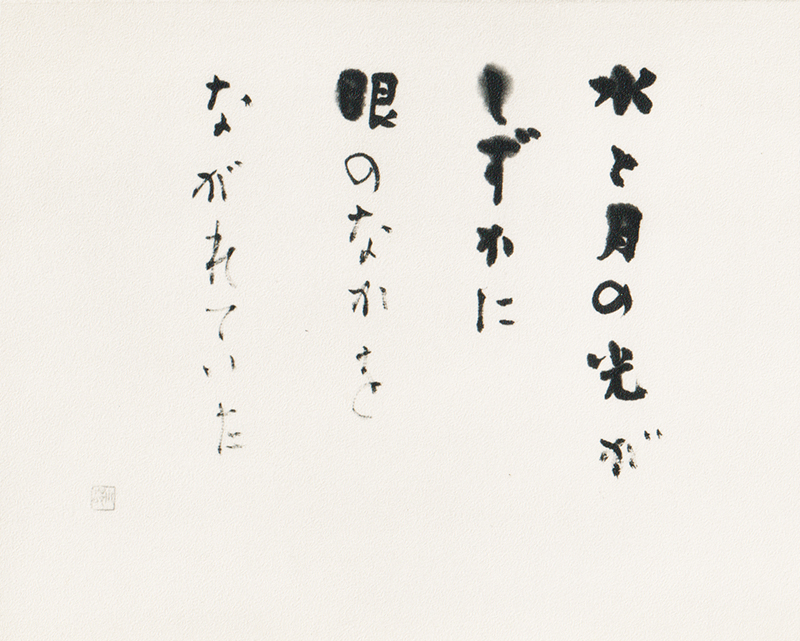 水と月の光が
しずかに
眼のなかを
ながれていた